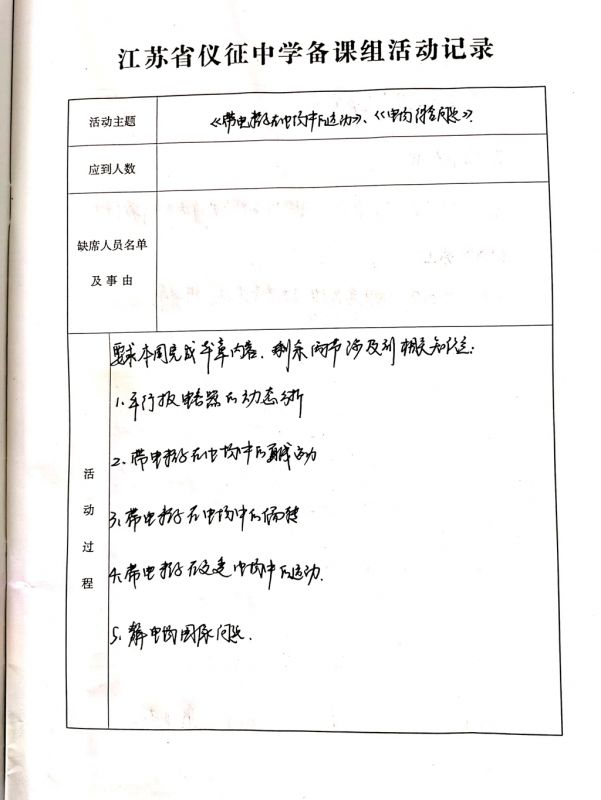 江苏省仪征中学备课组活动记录
活动主题
《带电粒子在电场中的运动》、《电场综合问题》.
应到人数
缺席人员名单
及事由
活动过程
要求本周完成本章内容. 剩余两节涉及到相关知识点:
1. 平行板电容器的动态分析
2. 带电粒子在电场中的直线运动
3. 带电粒子在电场中的偏转
4. 带电粒子在交变电场中的运动.
5. 静电场图像问题.